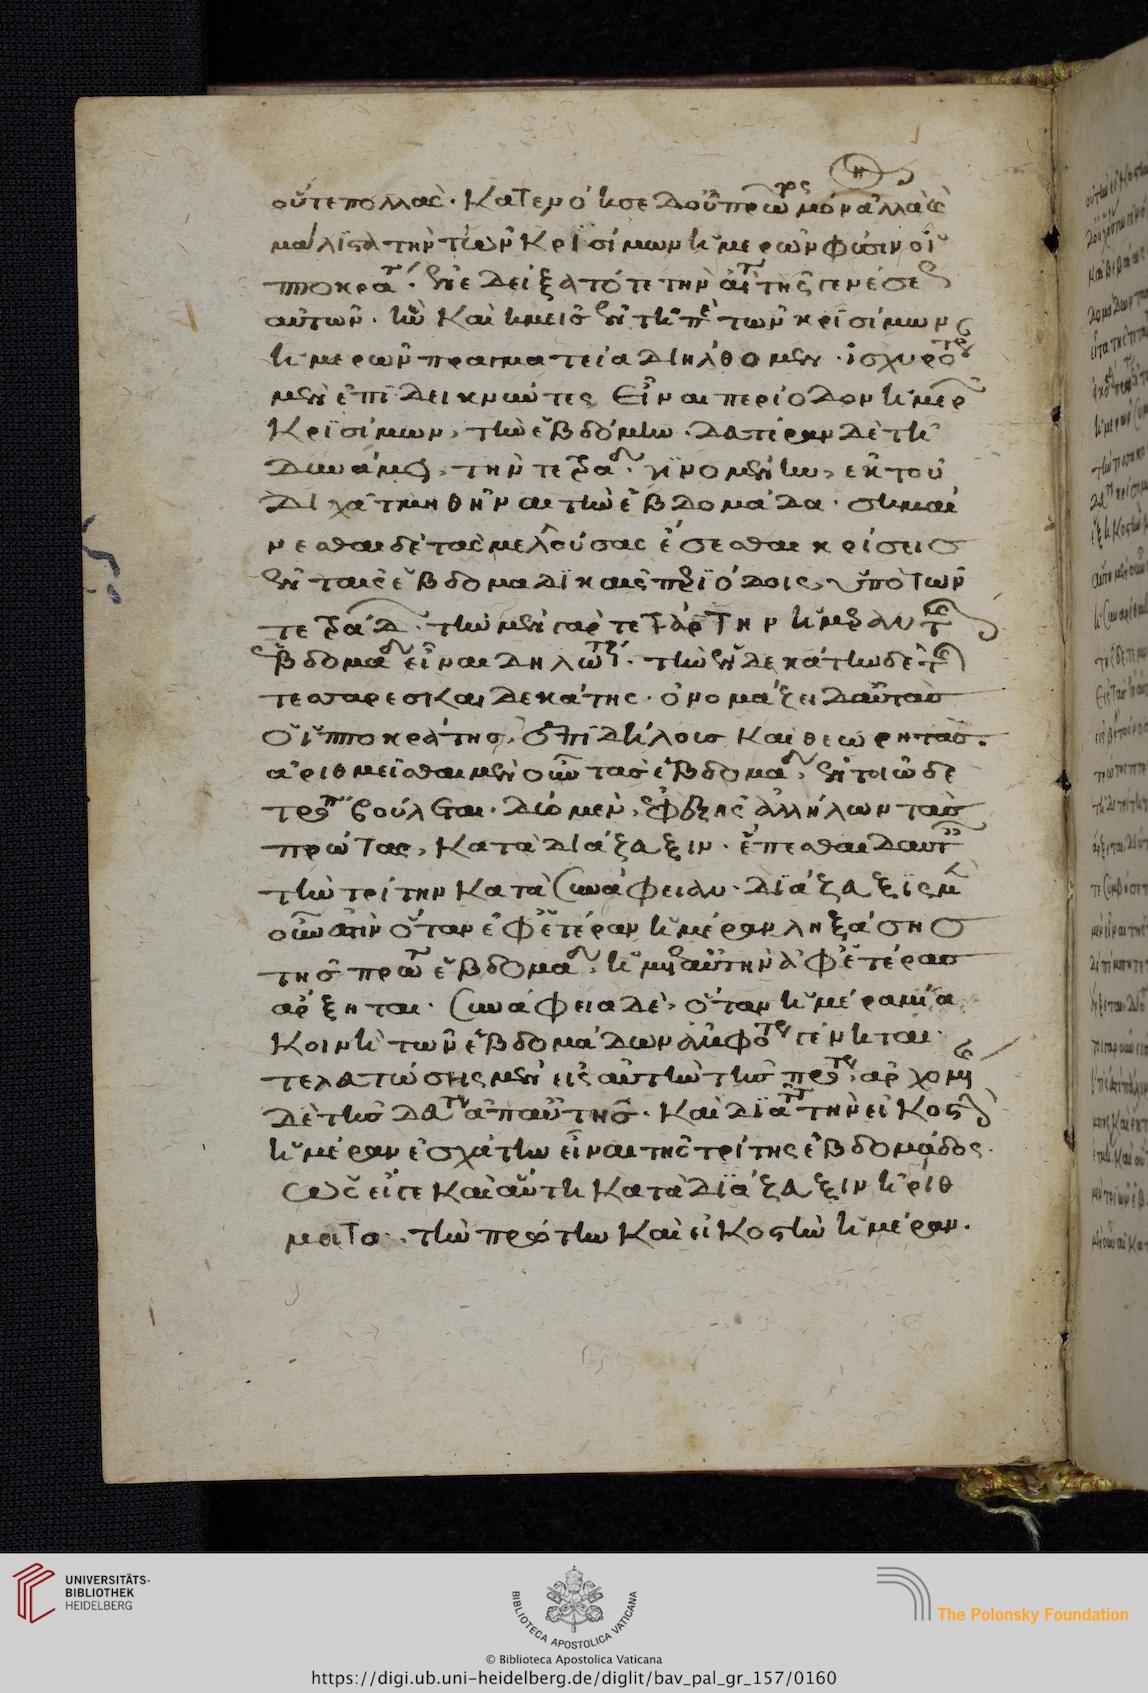 οὔτε πολλάς. κατενόησε δ' οὐ πρῶτος μόνον ἀλλὰ καὶ
μάλιστα τὴν τῶν κρισίμων ἡμερῶν φύσιν ὁ ἱπ
ποκράτης. ἐνεδείξατό τε τὴν αἰτίαν τῆς γενέσεως
αὐτῶν. ἣν καὶ ἡμεῖς ἐν τῇ περὶ τῶν κρισίμων
ἡμερῶν πραγματεία διήλθομεν. ἰσχυροτέραν
μὲν ἐπιδεικνύντες εἶναι περίοδον ἡμερῶν
κρισίμων, τὴν ἑβδόμην. δευτέραν δὲ τῇ
δυνάμει, τὴν τετράδα. γινομένην, ἐκ τοῦ
δίχα τμηθῆναι τὴν ἑβδομάδα. σημαί
νεσθαι δὲ τὰς μελλούσας ἔσεσθαι κρίσεις
ἐν ταῖς ἑβδομαδικαῖς περιόδοις, ὑπὸ τῶν
τετράδων. τὴν μὲν γὰρ τετάρτην ἡμέραν τῆς
ἑβδομάδος εἶναι δηλωτικήν. τὴν ἑνδεκάτην δὲ τῆς
τεσσαρεσκαιδεκάτης. ὀνομάζει δ' αὐτὰς
ὁ ἱπποκράτης, ἐπιδήλους καὶ θεωρητάς.
ἀριθμεῖσθαι μὲν οὖν τὰς ἑβδομάδας, ἐν τοιῷδε
τρόπῳ βούλεται. δύο μὲν, ἐφεξῆς ἀλλήλων τὰς
πρώτας, κατὰ διάζευξιν. ἕπεσθαι δ' αὐταῖς
τὴν τρίτην κατὰ συνάφειαν. διάζευξις μὲν
οὖν ἐστὶν ὅταν ἐφ' ἑτέραν ἡμέραν ληξάσης
τῆς πρώτης ἑβδομάδος, ἡ μετ' αὐτὴν ἀφ' ἑτέρας
ἄρξηται. συνάφεια δὲ, ὅταν ἡμέρα μία
κοινὴ τῶν ἑβδομάδων ἀμφοτέρων γένηται.
τελευτώσης μὲν εἰς αὐτὴν τῆς προτέρας, ἀρχομένης
δὲ τῆς δευτέρας ἀπ' αὐτῆς. καὶ διὰ τοῦτο τὴν εἰκοστὴν
ἡμέραν ἐσχάτην εἶναι τῆς τρίτης ἑβδομάδος.
ὡς εἴγε καὶ αὕτη κατὰ διάζευξιν ἠρίθ
μειτο, τὴν πρώτην καὶ εἰκοστὴν ἡμέραν.
UNIVERSITÄTS-
BIBLIOTHEK
HEIDELBERG
BIBLIOTECA APOSTOLICA VATICANA
The Polonsky Foundation
© Biblioteca Apostolica Vaticana
https://digi.ub.uni-heidelberg.de/diglit/bav_pal_gr_157/0160